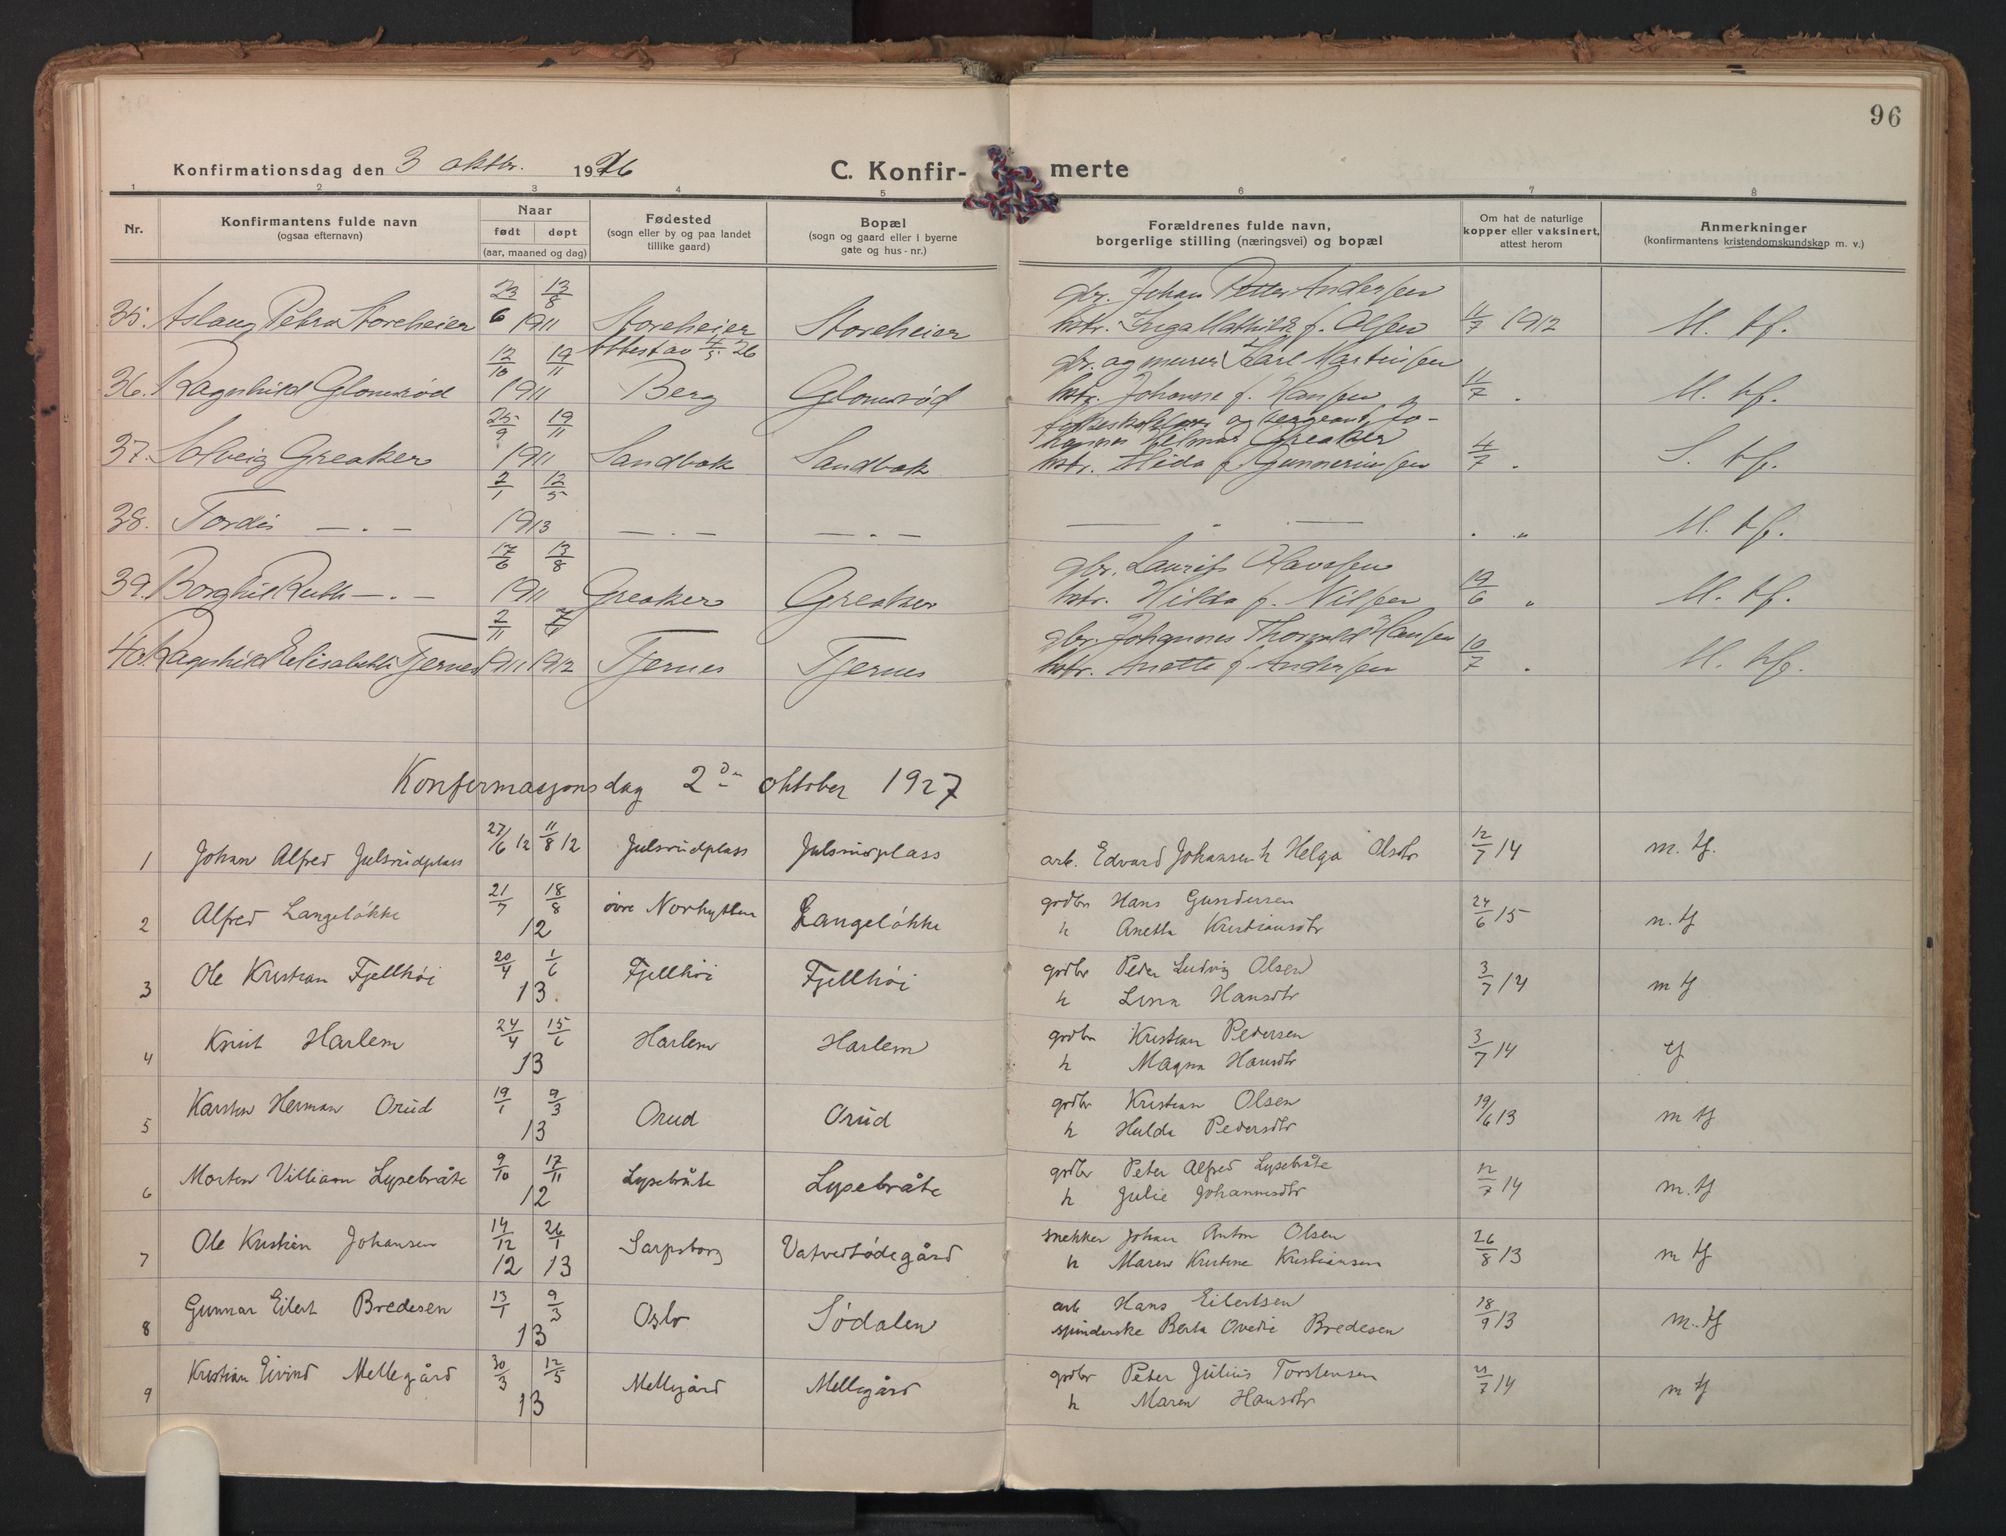 96
Konfirmationsdag den 3 oktbr. 1926 C. Konfirmerte
1 2 3 4 5 6 7 8
Nr.
Konfirmantens fulde navn
(ogsaa efternavn)
Naar
født døpt
(aar, maaned og dag)
Fødested
(sogn eller by og paa landet
tillike gaard)
Bopæl
(sogn og gaard eller i byerne
gate og hus-nr.)
Forældrenes fulde navn,
borgerlige stilling (næringsvei) og bopæl
Om hat de naturlige
kopper eller vaksinert,
attest herom
Anmerkninger
(konfirmantens kristendomskundskap m. v.)
23 13 gbr. Johan Petter Andersen
35. Aslaug Petra Storeheier 6 8 1911 Storeheier Storeheier hstr. Inga Mathilde f. Olsen 11/7 1912 M. tf.
12/10 19/11 Attest av 4/5 26 gbr. og murer Karl Martinsen
36. Ragnhild Glomsrød 1911 Berg Glomsrød hstr. Johanne f. Hansen 11/7 " M. tf.
25/9 19/11 og sergeant Jo-
hannes Hilmar Greaker
37. Solveig Greaker 1911 Sandbak Sandbak hstr. Hilda f. Gunneriussen 4/7 " S. tf.
2/1 12/5
38. Tordis — . — 1913 — . — — . — — " — . " M. tf.
17/6 13/8 gbr. Laurits Olavesen
39. Borghild Ruth — . — 1911 Greaker Greaker hstr. Hilda f. Nilsen 19/6 " M. tf.
2/11 gbr. Johannes Thorvald Hansen
40. Ragnhild Elisabeth Tjernes 1911 1912 Tjernes Tjernes hstr. Anette f. Andersen 10/7 " M. tf.
Konfirmasjonsdag 2den oktober 1927
1 Johan Alfred Julsrudplass 27/6 12 11/8 12 Julsrudplass Julsrudplass arb. Edvard Johansen h Helga Olsdtr 12/7 14 m. tf.
21/7 18/8 grdbr Hans Gundersen
2 Alfred Langeløkke 12 øvre Norhytten Langeløkke h Anetta Kristiansdtr 24/6 15 n. tf
20/4 1/6 grdbr Peder Ludvig Olsen
3 Ole Kristian Fjellhøi 13 Fjellhøi Fjellhøi h Lina Hansdtr 3/7 14 m tf
24/4 15/6 grdbr Kristian Pedersen
4 Knut Harlem 13 Harlem Harlem h Magna Hansdtr 3/7 14 tf
19/1 9/3 grdbr Kristian Olsen
5 Karsten Herman Orud 13 Orud Orud h Hulda Pedersdtr 19/6 13 m tf
9/10 17/11 grdbr Peter Alfred Lysebråte
6 Morten Villiam Lysebråte 12 Lysebråte Lysebråte h Julie Johannesdtr 12/7 14 m. tf
14/12 26/1 snekker Johan Anton Olsen
7 Ole Kristian Johansen 12 13 Sarpsborg Vatvedtødegård h Maren Kristine Kristiansen 26/8 13 m tf
13/1 9/3 arb Hans Eilertsen
8 Gunnar Eilert Bredesen 13 Oslo Sødalen spinderske Berta Ovedie Bredesen 18/9 13 m. tf
30/3 12/5 grdbr Peter Julius Torstensen
9 Kristian Eivind Mellegård 13 Mellegård Mellegård h Maren Hansdtr 21/7 14 m tf